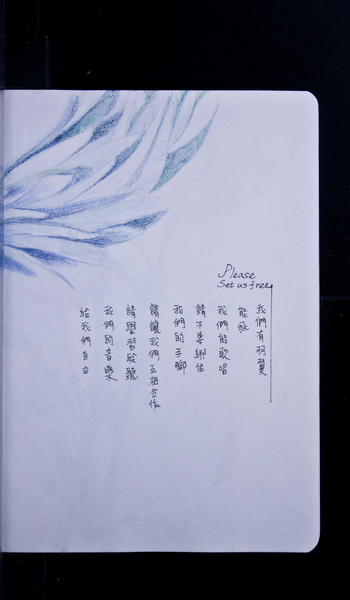 Please
Set us free
我們有羽翼
能飛
我們能歌唱
請不要綁住
我們的手腳
請讓我們互相合作
請學習聆聽
我們的音樂
給我們自由